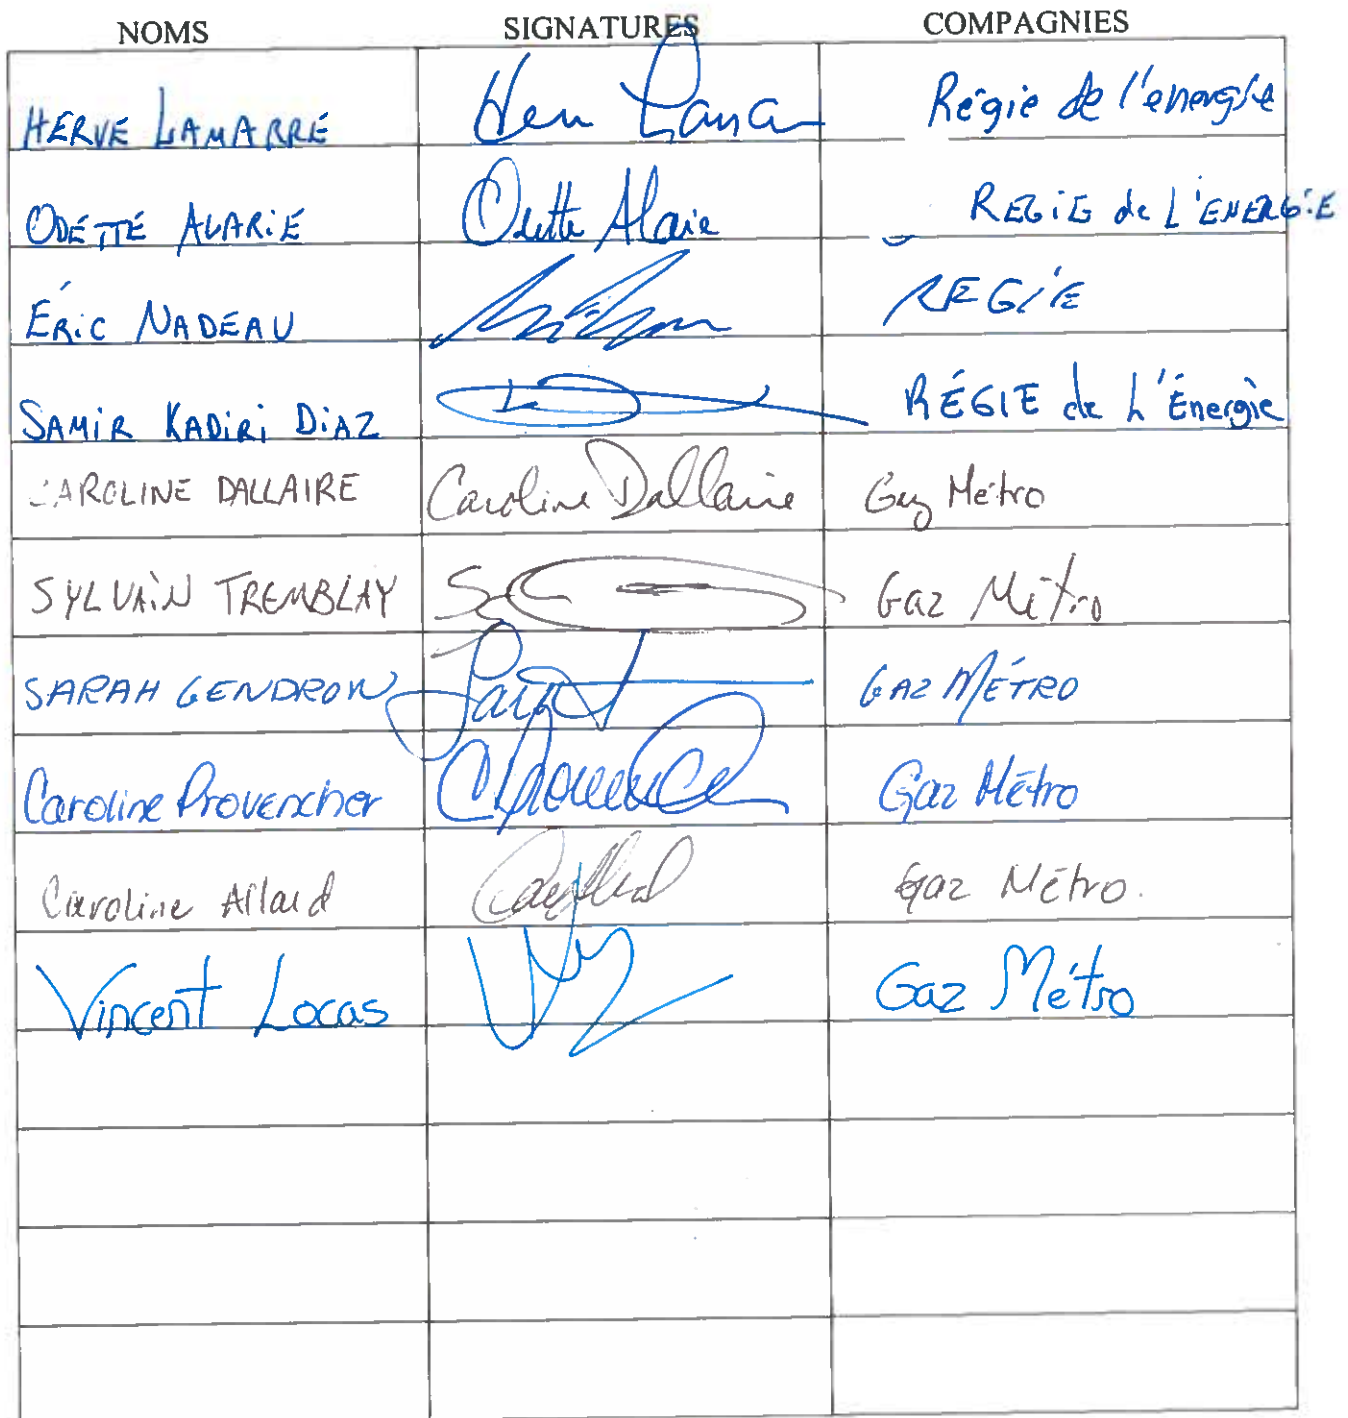 NOMS SIGNATURES COMPAGNIES
HERVE LAMARRE Régie de l'energie
ODETTE ALARIE Odette Alarie REGIE de L'ENERGIE
ÉRIC NADEAU REGIE
SAMIR KADIRI DIAZ RÉGIE de L'Énergie
CAROLINE DALLAIRE Caroline Dallaire Gaz Métro
SYLVAIN TREMBLAY Gaz Métro
SARAH GENDRON GAZ MÉTRO
Caroline Provencher Gaz Métro
Caroline Allard Gaz Métro.
Vincent Locas Gaz Métro